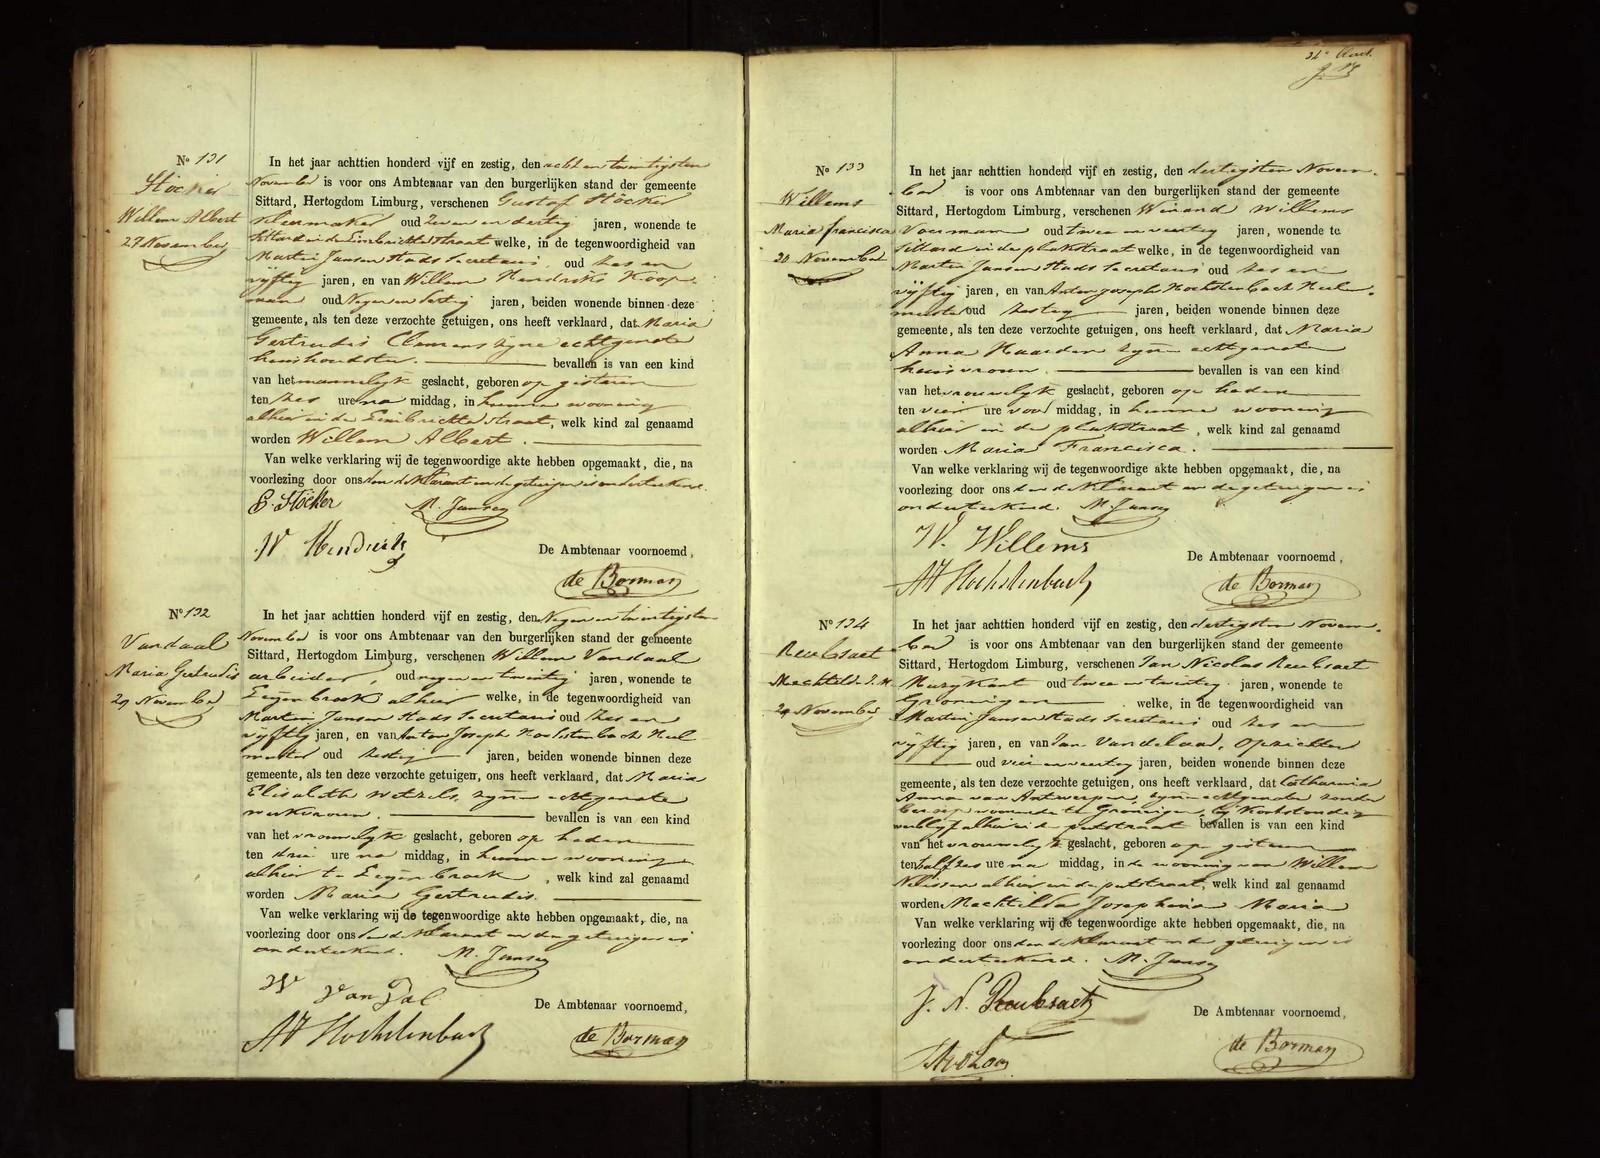 No 131
Stöcker
Willem Albert
27 November
In het jaar achttien honderd vijf en zestig, den acht en twintigsten
November is voor ons Ambtenaar van den burgerlijken stand der gemeente
Sittard, Hertogdom Limburg, verschenen Gustaf Stöcker
oud zeven en dertig jaren, wonende te
Sittard in de Limbrichterstraat welke, in de tegenwoordigheid van
Martin Jansen Stads Secretaris oud zes en
vijftig jaren, en van Willem Hendriks Koop-
man oud Negen en dertig jaren, beiden wonende binnen deze
gemeente, als ten deze verzochte getuigen, ons heeft verklaard, dat Maria
Gertrudis Clemens zijne echtgenote
huishoudster. bevallen is van een kind
van het mannelijk geslacht, geboren op gisteren
ten zes ure na middag, in hunne wooning
alhier in de Limbrichterstraat, welk kind zal genaamd
worden Willem Albert.
Van welke verklaring wij de tegenwoordige akte hebben opgemaakt, die, na
voorlezing door ons den deklarant en de getuigen is onderteekend.
G. Stöcker M. Jansen
W Hendriks
De Ambtenaar voornoemd,
de Borman
No 132
Vandaal
Maria Gertrudis
29 November
In het jaar achttien honderd vijf en zestig, den Negen en twintigsten
November is voor ons Ambtenaar van den burgerlijken stand der gemeente
Sittard, Hertogdom Limburg, verschenen Willem Vandaal
arbeider, oud negen en twintig jaren, wonende te
alhier welke, in de tegenwoordigheid van
Martin Jansen Stads Secretaris oud zes en
vijftig jaren, en van Anton Joseph Hochstenbach Heel-
meester oud zestig jaren, beiden wonende binnen deze
gemeente, als ten deze verzochte getuigen, ons heeft verklaard, dat Maria
Elisabeth Wetzels, zijne echtgenote
werkvrouw. bevallen is van een kind
van het vrouwelijk geslacht, geboren op heden
ten drie ure na middag, in hunne wooning
alhier te , welk kind zal genaamd
worden Maria Gertrudis.
Van welke verklaring wij de tegenwoordige akte hebben opgemaakt, die, na
voorlezing door ons den deklarant en de getuigen is
onderteekend. M. Jansen
W van Dal
De Ambtenaar voornoemd,
AJ Hochstenbach
de Borman
No 133
Willems
Maria Francisca
30 November
In het jaar achttien honderd vijf en zestig, den dertigsten Novem-
ber is voor ons Ambtenaar van den burgerlijken stand der gemeente
Sittard, Hertogdom Limburg, verschenen Winand Willems
Voerman oud twee en veertig jaren, wonende te
Sittard in de plakstraat welke, in de tegenwoordigheid van
Martin Jansen Stads Secretaris oud zes en
vijftig jaren, en van Anton Joseph Hochstenbach Heel-
meester oud zestig jaren, beiden wonende binnen deze
gemeente, als ten deze verzochte getuigen, ons heeft verklaard, dat Maria
Anna Haarden zijne echtgenote
huisvrouw. bevallen is van een kind
van het vrouwelijk geslacht, geboren op heden
ten vier ure voor middag, in hunne wooning
alhier in de plakstraat, welk kind zal genaamd
worden Maria Francisca.
Van welke verklaring wij de tegenwoordige akte hebben opgemaakt, die, na
voorlezing door ons den deklarant en de getuigen is
onderteekend. M. Jansen
W. Willems
De Ambtenaar voornoemd,
AJ Hochstenbach
de Borman
No 134
Reubsaet
Mechtild. J. M.
29 November
In het jaar achttien honderd vijf en zestig, den dertigsten Novem-
ber is voor ons Ambtenaar van den burgerlijken stand der gemeente
Sittard, Hertogdom Limburg, verschenen Jan Nicolas Reubsaet
Muzykant oud twee en twintig jaren, wonende te
Groningen welke, in de tegenwoordigheid van
Martin Jansen Stads Secretaris oud zes en
vijftig jaren, en van Jan Vandelaar, Opzichter
oud vier en veertig jaren, beiden wonende binnen deze
gemeente, als ten deze verzochte getuigen, ons heeft verklaard, dat Catharina
Anna van Antwerpen, zijne echtgenote zonder
beroep wonende te Groningen, bij kortstondig
verblijf alhier in de putstraat bevallen is van een kind
van het vrouwelijk geslacht, geboren op gisteren
ten half zes ure na middag, in de wooning van Willem
Nelissen alhier in de putstraat, welk kind zal genaamd
worden Mechtilda Josephina Maria
Van welke verklaring wij de tegenwoordige akte hebben opgemaakt, die, na
voorlezing door ons den deklarant en de getuigen is
onderteekend. M. Jansen
J. N. Reubsaet
De Ambtenaar voornoemd,
de Borman